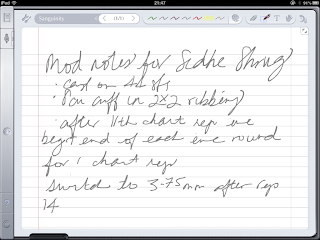 iPad 21:47 96%
Mod notes for Sidhe Shrug
· cast on 42 sts
· 8 on cuff in 2x2 ribbing
· after 11th chart rep inc
beg+end of each eve round
for 1 chart rep
switch to 3.75mm after rep
14